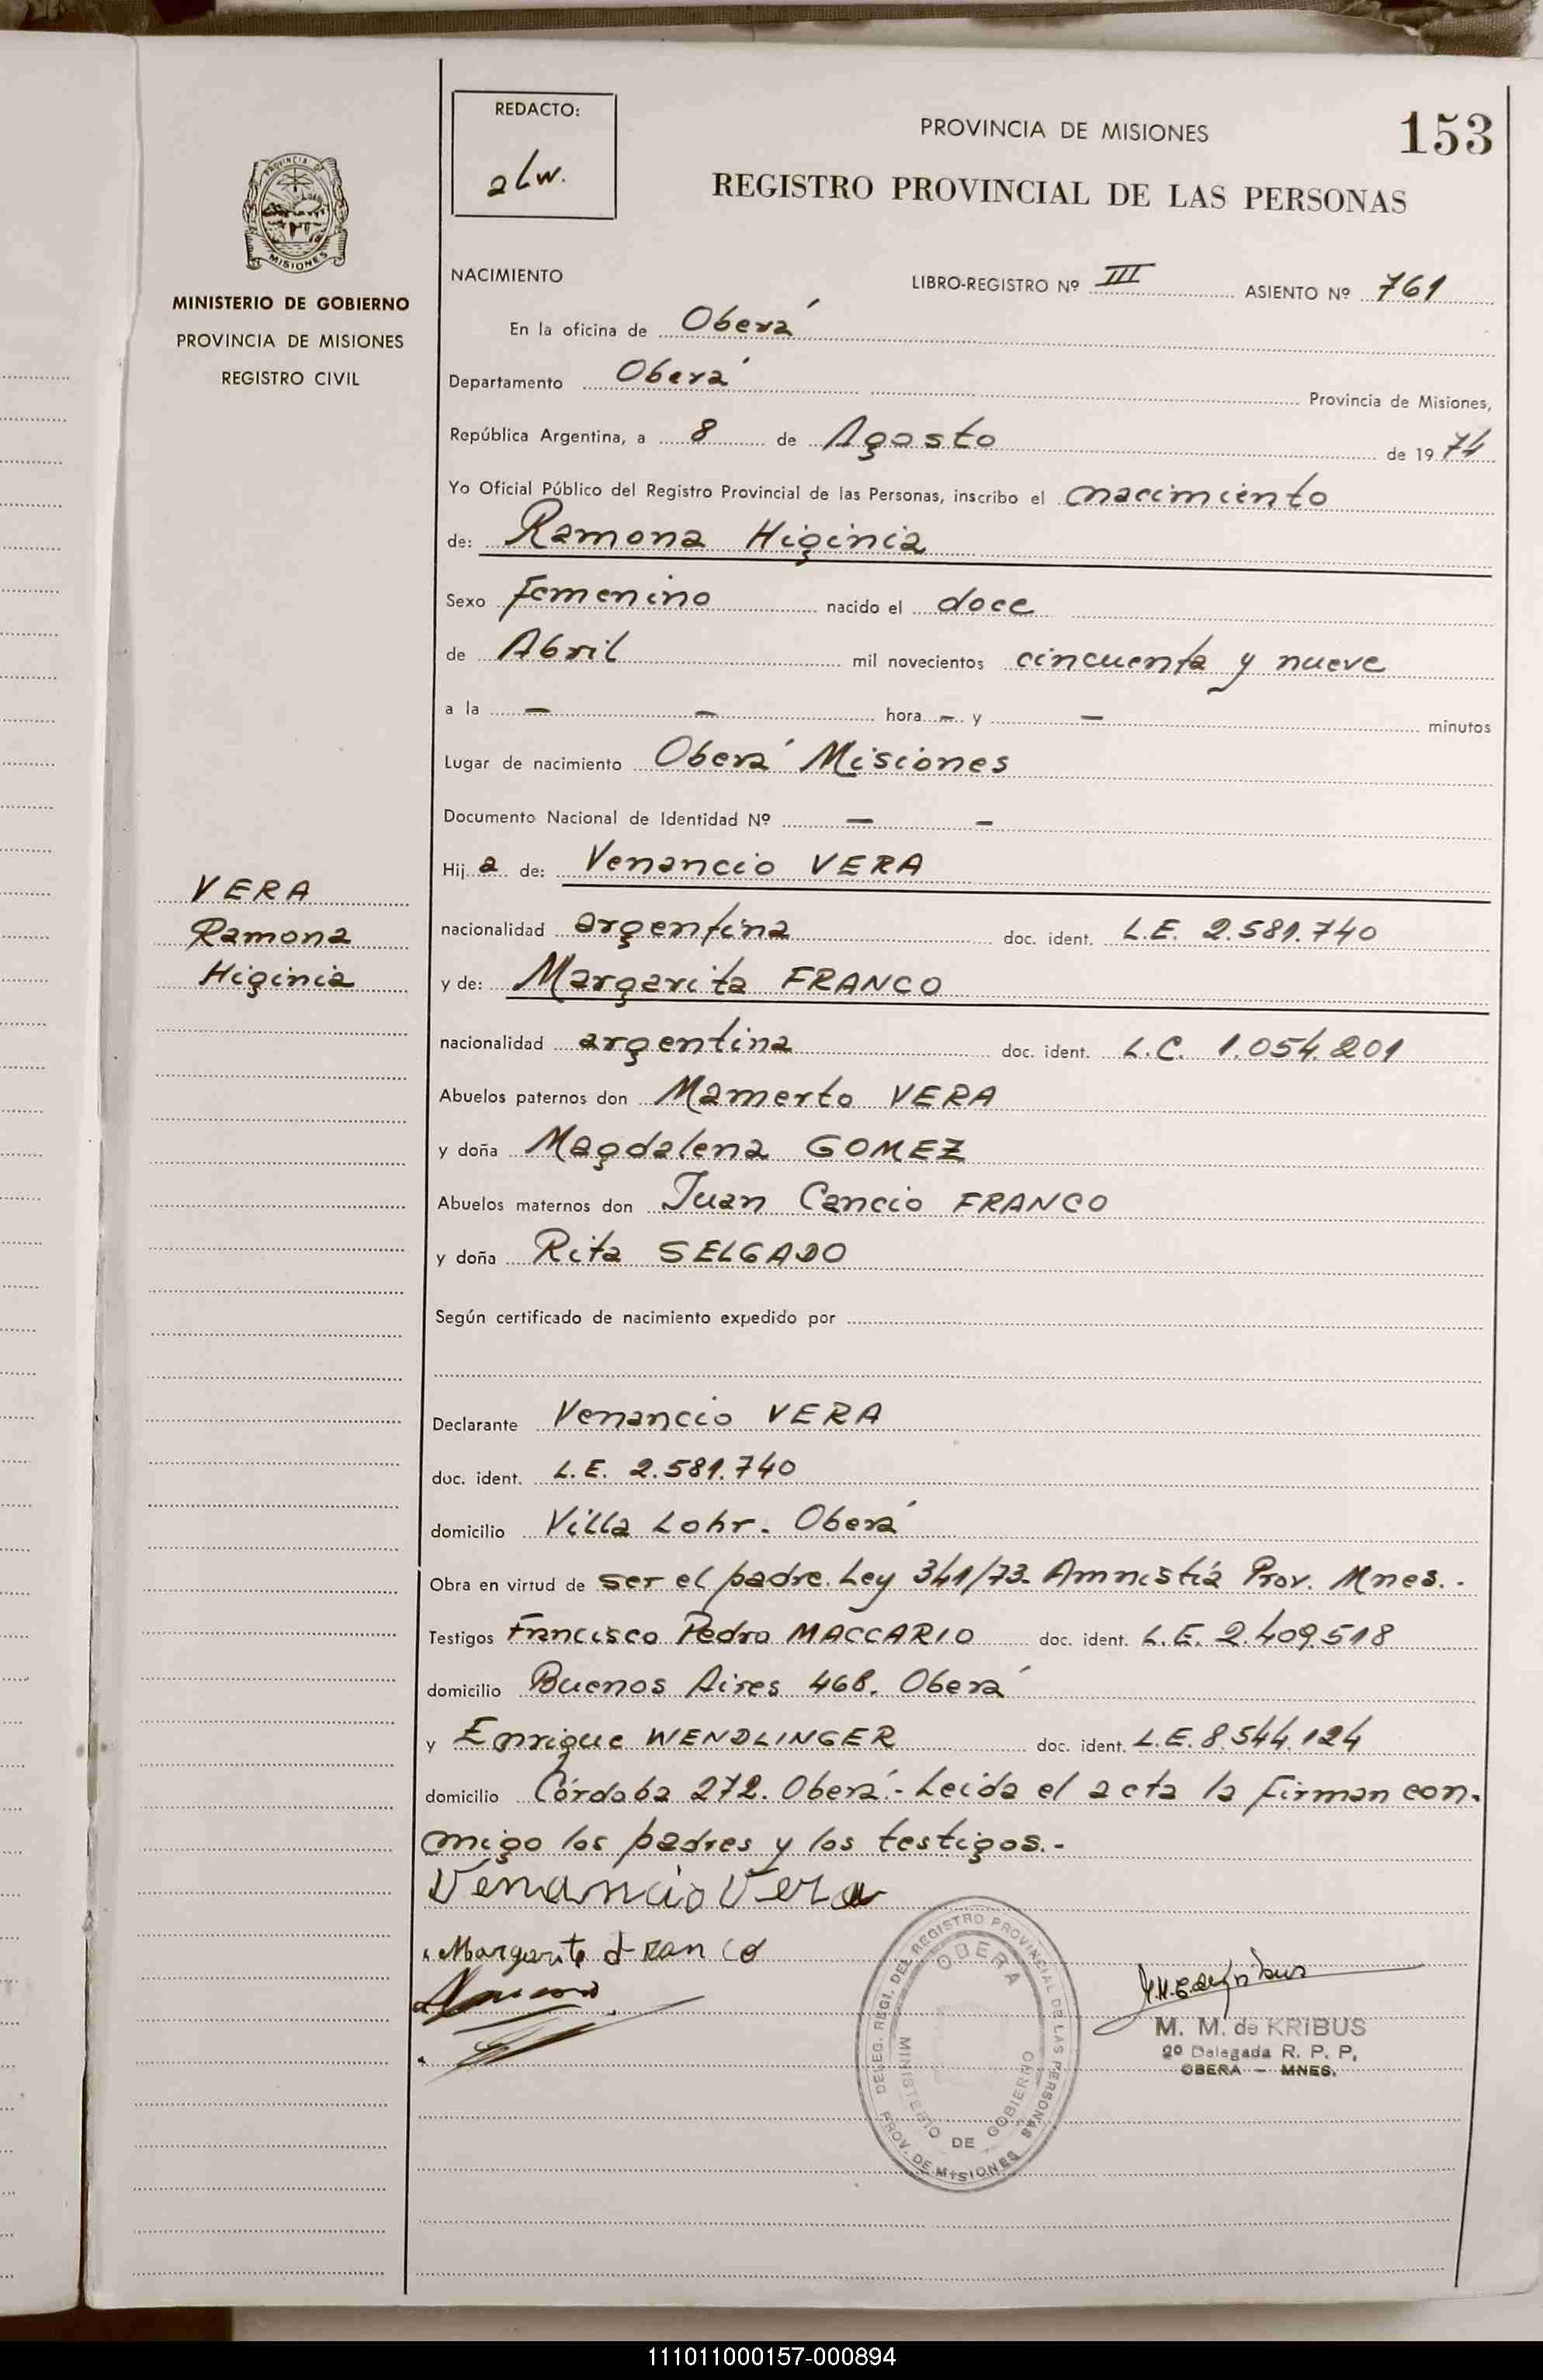 REDACTO:
alw.
PROVINCIA DE MISIONES
153
REGISTRO PROVINCIAL DE LAS PERSONAS
PROVINCIA DE
MISIONES
MINISTERIO DE GOBIERNO
PROVINCIA DE MISIONES
REGISTRO CIVIL
NACIMIENTO LIBRO-REGISTRO Nº III ASIENTO Nº 761
En la oficina de Oberá
Departamento Oberá Provincia de Misiones,
República Argentina, a 8 de Agosto de 1974
Yo Oficial Público del Registro Provincial de las Personas, inscribo el nacimiento
de: Ramona Higinia
Sexo Femenino nacido el doce
de Abril mil novecientos cincuenta y nueve
a la — — hora — y — minutos
Lugar de nacimiento Oberá Misiones
Documento Nacional de Identidad Nº — —
Hija de: Venancio VERA
nacionalidad argentina doc. ident. L.E. 2.581.740
y de: Margarita FRANCO
nacionalidad argentina doc. ident. L.C. 1.054.201
Abuelos paternos don Mamerto VERA
y doña Magdalena GOMEZ
Abuelos maternos don Juan Cancio FRANCO
y doña Rita SELGADO
Según certificado de nacimiento expedido por
Declarante Venancio VERA
doc. ident. L.E. 2.581.740
domicilio Villa Lohr. Oberá
Obra en virtud de ser el padre. Ley 341/73. Amnistía Prov. Mnes.-
Testigos Francisco Pedro MACCARIO doc. ident. L.E. 2.409.518
domicilio Buenos Aires 468. Oberá
y Enrique WENDLINGER doc. ident. L.E. 8.544.124
domicilio Córdoba 272. Oberá.- Leída el acta la firman con-
migo los padres y los testigos.-
VERA
Ramona
Higinia
Venancio Vera
Margarita Franco
DELEG. REGI. DEL REGISTRO PROVINCIAL DE LAS PERSONAS
OBERA
MINISTERIO DE GOBIERNO
PROV. DE MISIONES
M. M. de KRIBUS
2º Delegada R. P. P.
OBERA — MNES.
111011000157-000894